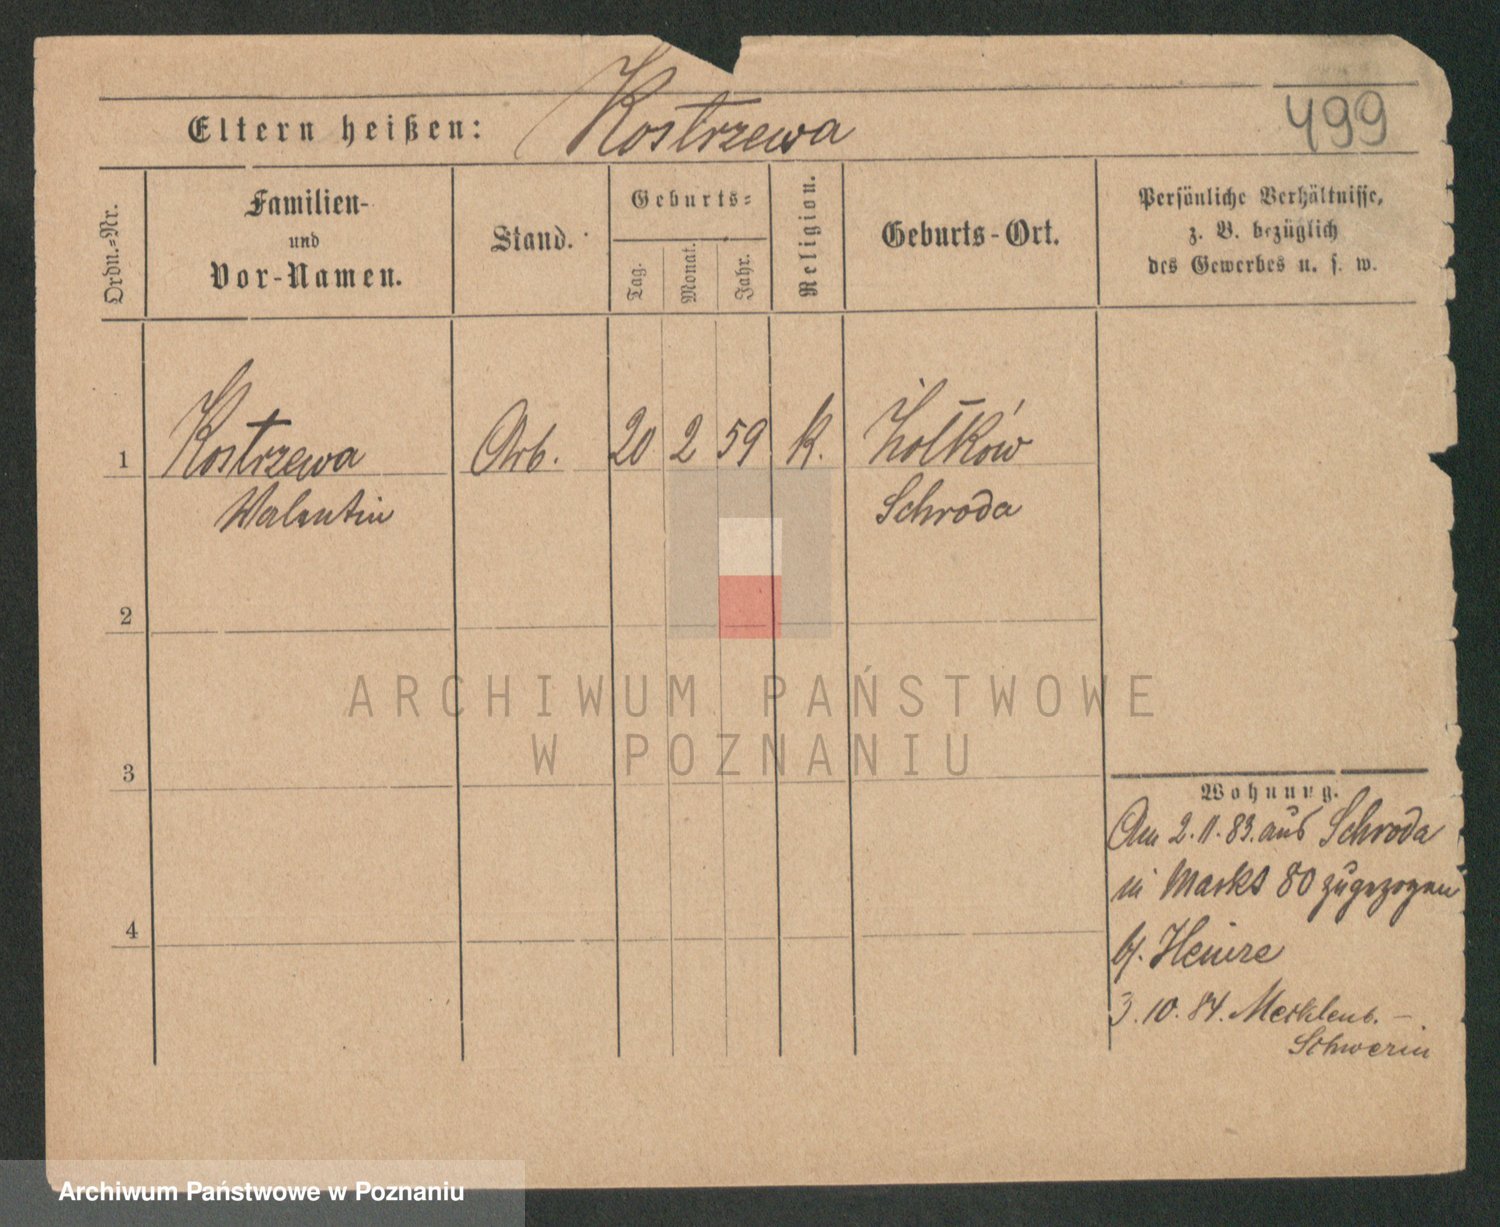 Eltern heißen: Kostrzewa
499
Ordn.=Nr.
Familien-
und
Vor-Namen.
Stand.
Geburts=
Tag.
Monat.
Jahr.
Religion.
Geburts-Ort.
Persönliche Verhältnisse,
z. B. bezüglich
des Gewerbes u. s. w.
1 Kostrzewa Arb. 20 2 59 k. Żołków
Walentin Schroda
2
3
4
Wohnung.
Am 2.11.83. aus Schroda
in Markt 80 zugezogen
b/.
3.10.84. Mecklenb.-
Schwerin
ARCHIWUM PAŃSTWOWE
W POZNANIU
Archiwum Państwowe w Poznaniu